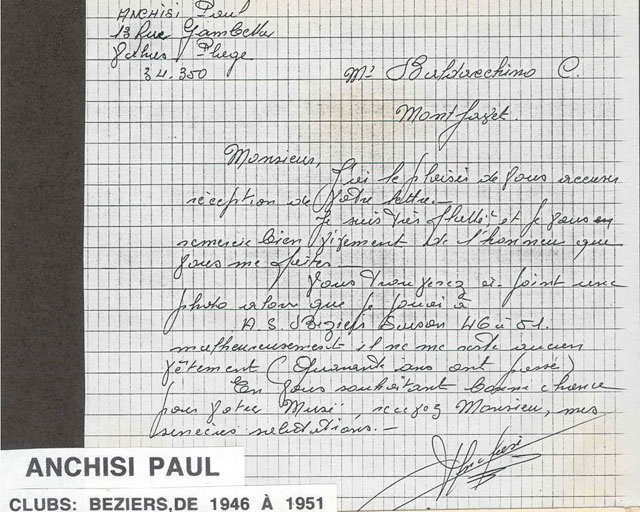 ANCHISI Paul
13 Rue Gambetta
Valras Plage
34.350
Mr Baldacchino C.
Montfavet.
Monsieur,
J'ai le plaisir de vous accuser
réception de votre lettre.
Je suis très flatté et je vous en
remercie bien vivement de l'honneur que
vous me faites.
Vous trouverez ci-joint une
photo alors que je jouai à
A.S. Béziers Saison 46 à 51.
malheureusement il ne me reste aucun
vêtement (Quarante ans ont passé)
En vous souhaitant bonne chance
pour votre Musée, recevez Monsieur, mes
sincères salutations.-
ANCHISI PAUL
CLUBS: BEZIERS,DE 1946 À 1951